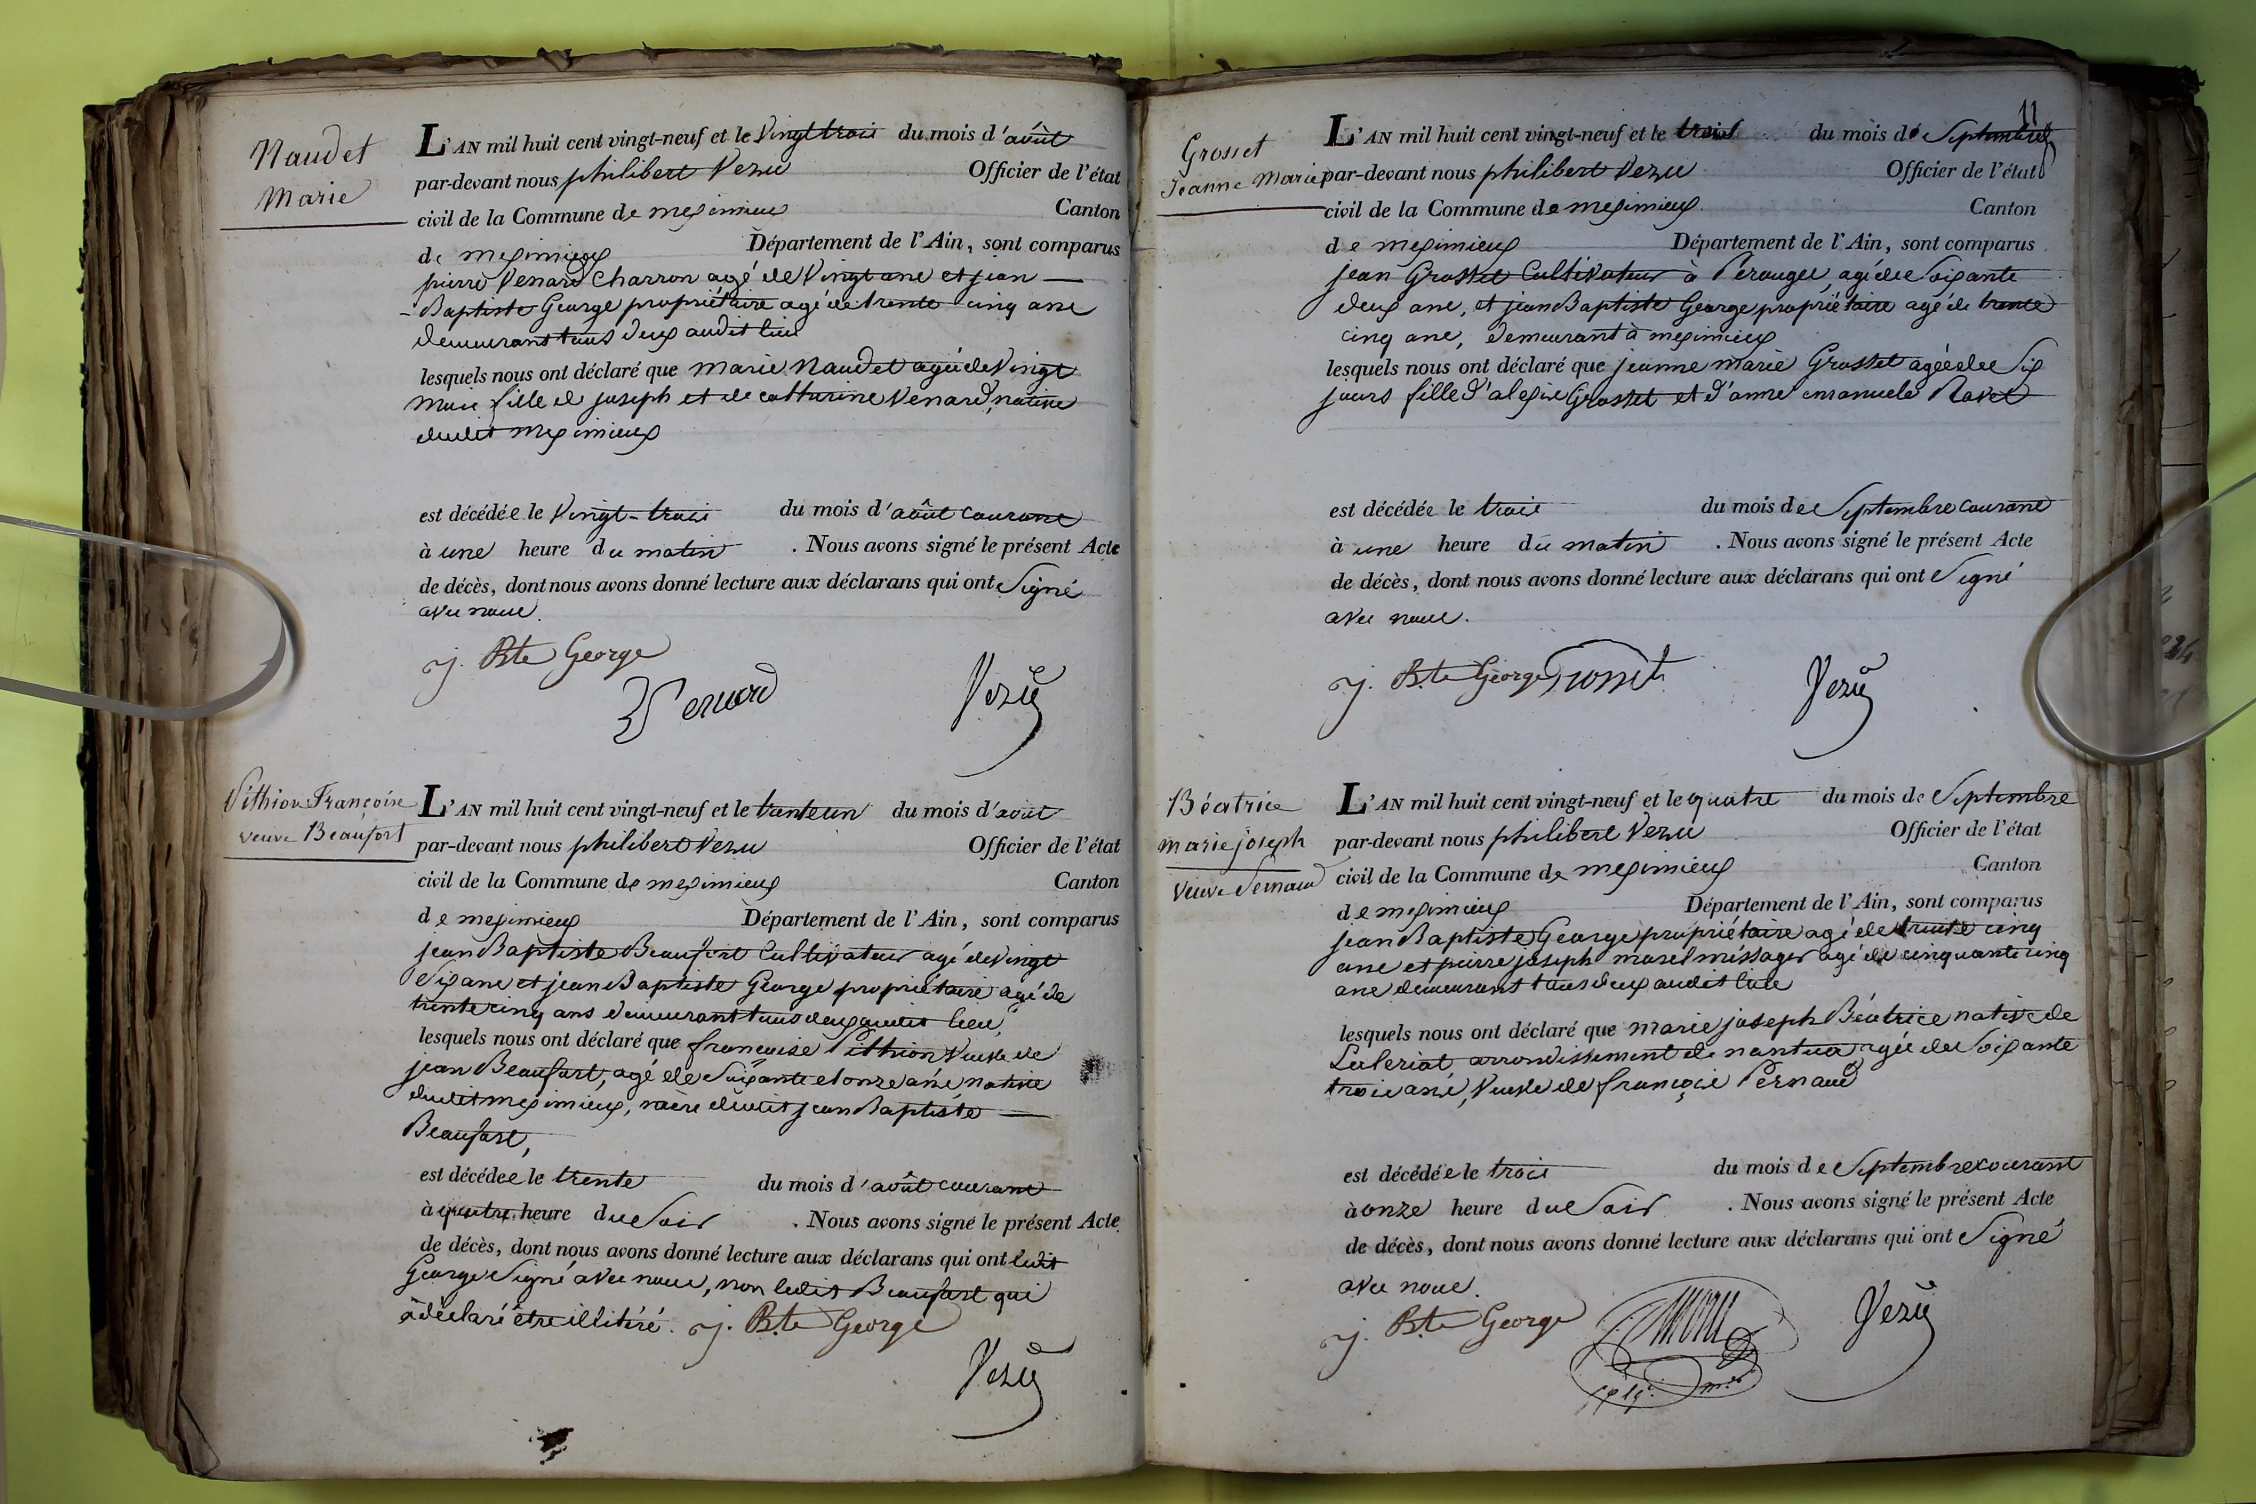 Naudet
Marie
L'AN mil huit cent vingt-neuf et le Vingt trois du mois d'août
par-devant nous philibert Vezu Officier de l'état
civil de la Commune de meximieux Canton
de meximieux Département de l'Ain, sont comparus
pierre Venard Charron agé de Vingt ans et jean
Baptiste George propriétaire agé de trente cinq ans
demeurant tous deux audit lieu
lesquels nous ont déclaré que marie Naudet agée de Vingt
mois fille de joseph et de catherine Venard, native
dudit meximieux
est décédée le Vingt-trois du mois d'août courant
à une heure du matin . Nous avons signé le présent Acte
de décès, dont nous avons donné lecture aux déclarans qui ont Signé
avec nous.
j. Bte George
Venard
Vezu
Pithion Françoise
veuve Beaufort
L'AN mil huit cent vingt-neuf et le trente un du mois d'août
par-devant nous philibert Vezu Officier de l'état
civil de la Commune de meximieux Canton
de meximieux Département de l'Ain, sont comparus
jean Baptiste Beaufort Cultivateur agé de vingt
Six ans et jean Baptiste George propriétaire agé de
trente cinq ans demeurant tous deux audit lieu,
lesquels nous ont déclaré que françoise Pithion Veuve de
jean Beaufort, agé de Soixante et onze ans native
dudit meximieux, mère dudit jean Baptiste
Beaufort,
est décédée le trente du mois d'août courant
à quatre heure du Soir . Nous avons signé le présent Acte
de décès, dont nous avons donné lecture aux déclarans qui ont ledit
George Signé avec nous, non ledit Beaufort qui
a déclaré être illitéré. j. Bte George
Vezu
11
Grosset
Jeanne Marie
L'AN mil huit cent vingt-neuf et le trois du mois de Septembre
par-devant nous philibert Vezu Officier de l'état
civil de la Commune de meximieux Canton
de meximieux Département de l'Ain, sont comparus
jean Grosset Cultivateur à Perouges, agé de Soixante
deux ans, et jean Baptiste George propriétaire agé de trente
cinq ans, demeurant à meximieux
lesquels nous ont déclaré que jeanne marie Grosset agée de Six
jours fille d'alexis Grosset et d'anne emanuele Ravet
est décédée le trois du mois de Septembre courant
à une heure du matin . Nous avons signé le présent Acte
de décès, dont nous avons donné lecture aux déclarans qui ont Signé
avec nous.
j. Bte George Grosset
Vezu
Béatrice
marie joseph
veuve Pernaud
L'AN mil huit cent vingt-neuf et le quatre du mois de Septembre
par-devant nous philibert Vezu Officier de l'état
civil de la Commune de meximieux Canton
de meximieux Département de l'Ain, sont comparus
jean Baptiste George propriétaire agé de trente cinq
ans et pierre joseph morel méssager agé de cinquante cinq
ans demeurant tous deux audit lieu
lesquels nous ont déclaré que marie joseph Béatrice native de
Laleriat, arrondissement de nantua agée de Soixante
trois ans, Veuve de françois Pernaud
est décédée le trois du mois de Septembre courant
à onze heure du Soir . Nous avons signé le présent Acte
de décès, dont nous avons donné lecture aux déclarans qui ont Signé
avec nous.
j. Bte George
Vezu